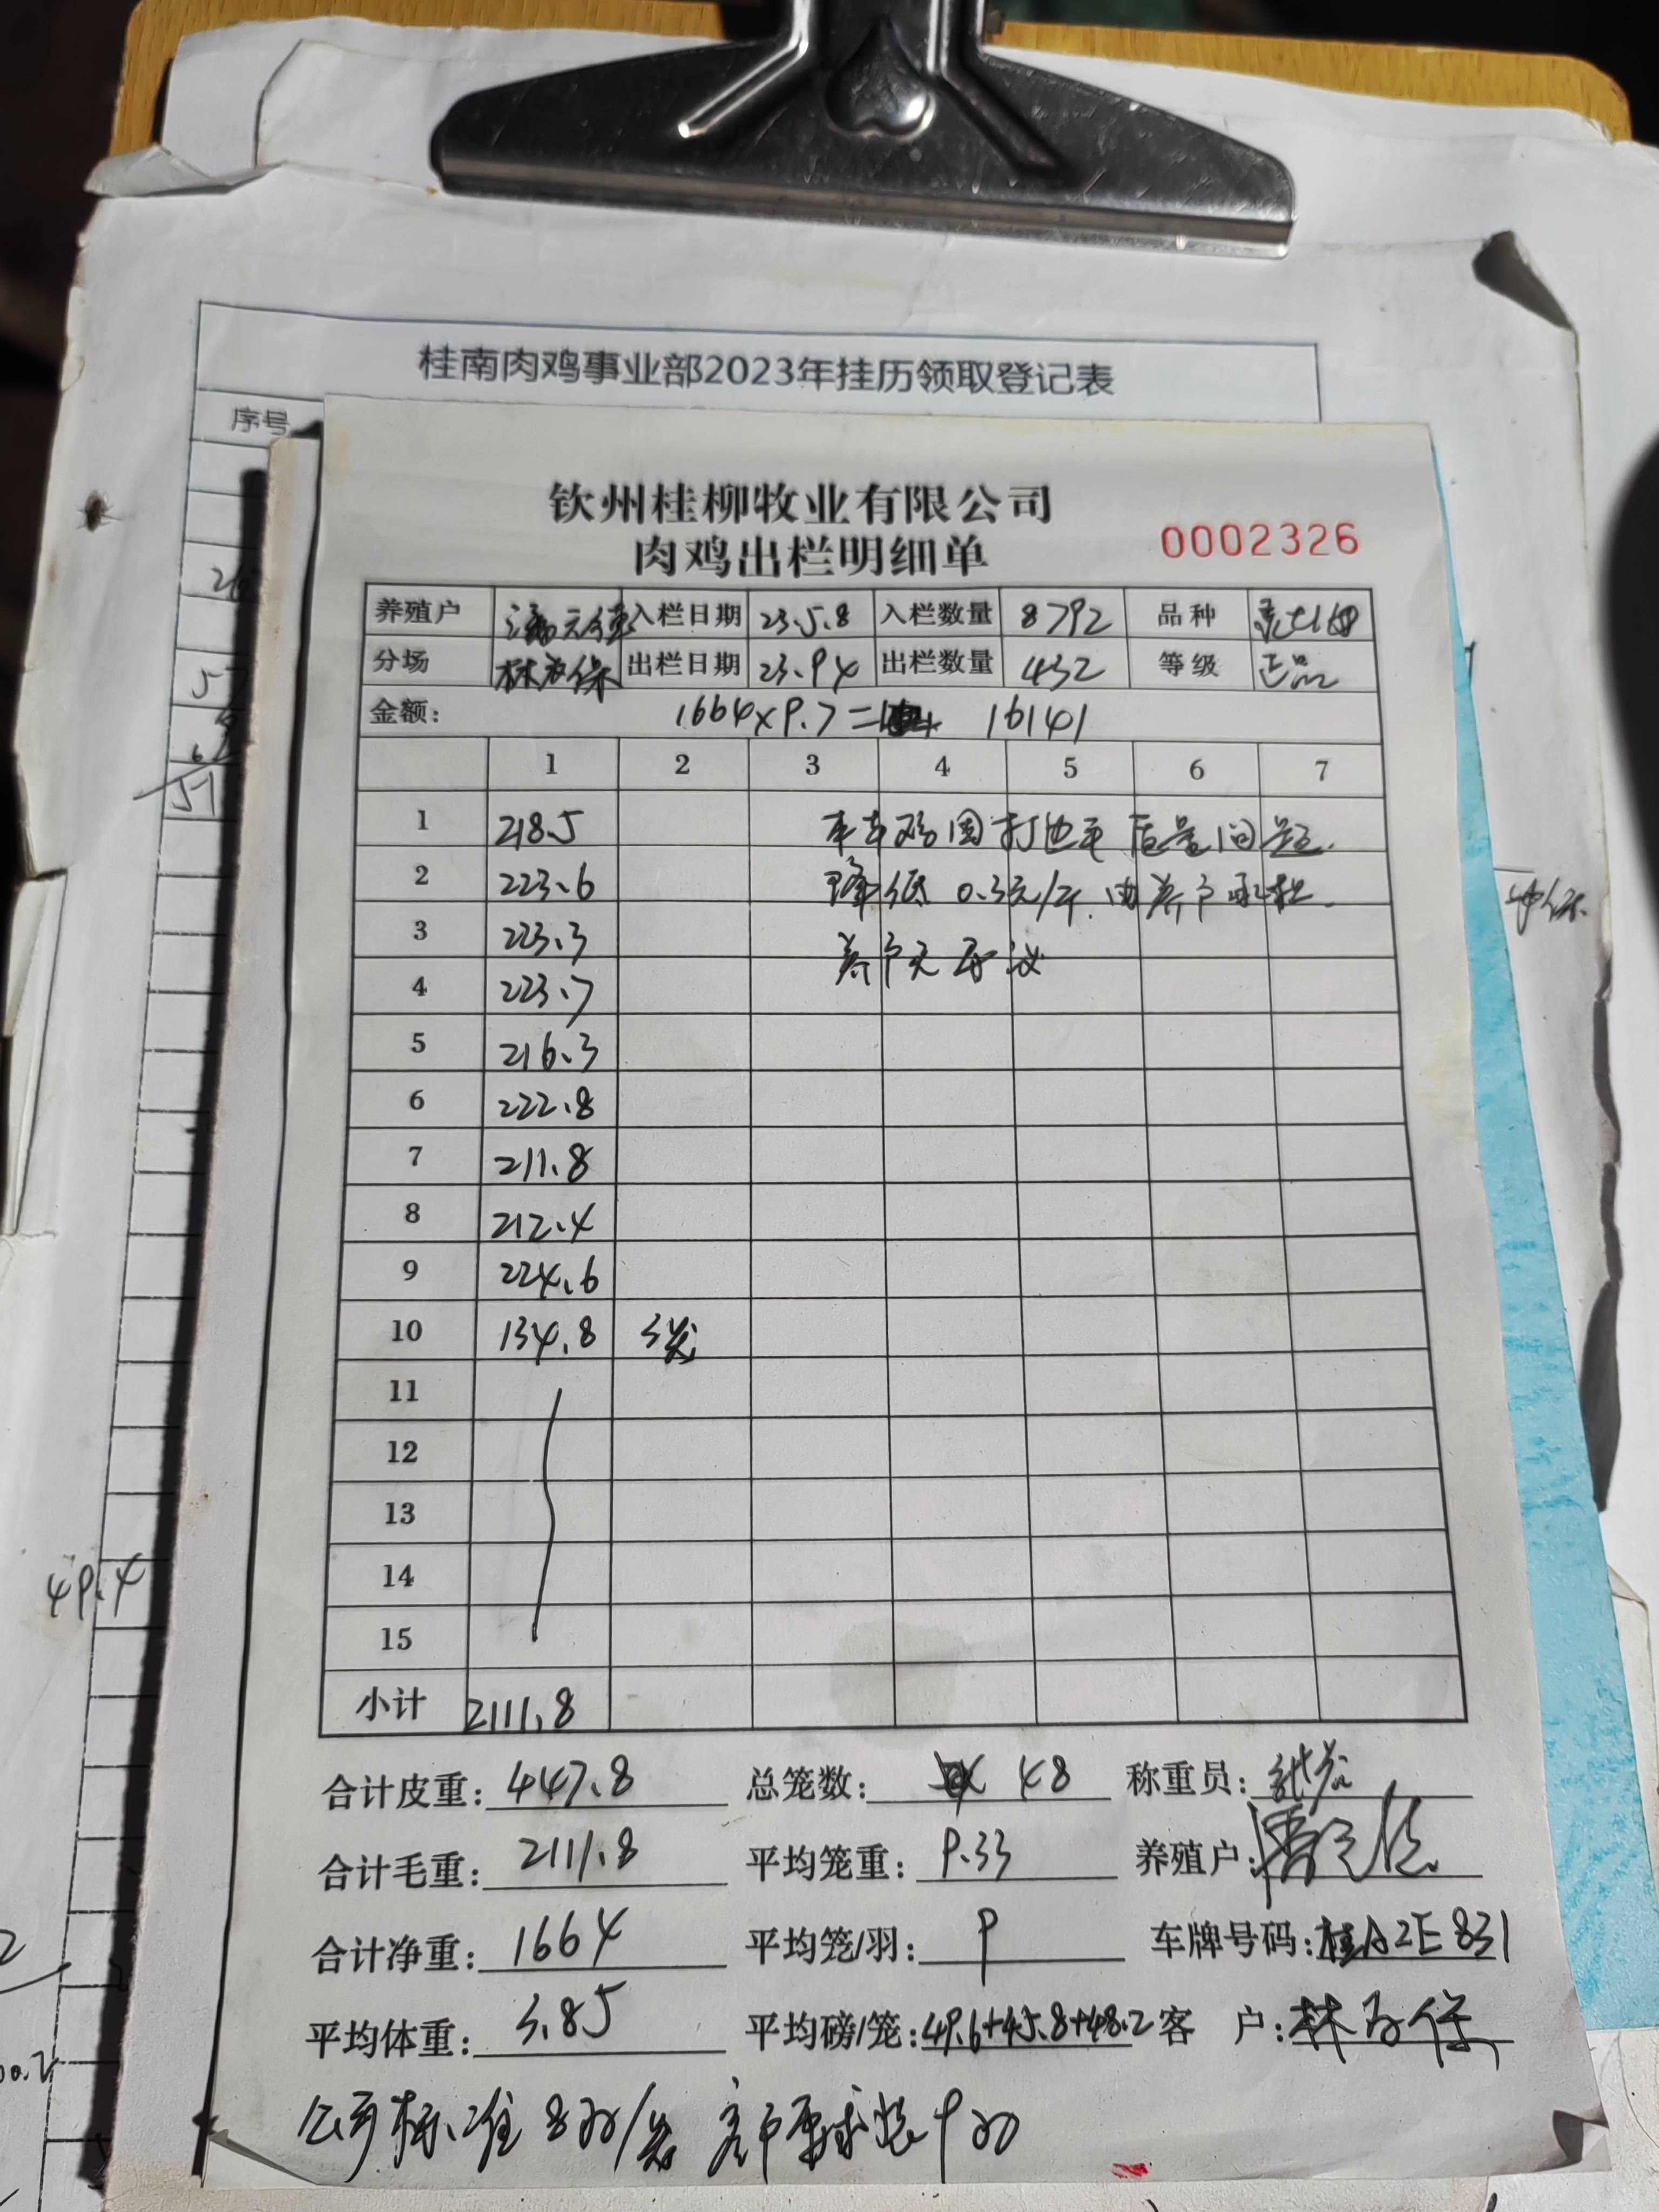 桂南肉鸡事业部2023年挂历领取登记表
序号
钦州桂柳牧业有限公司
肉鸡出栏明细单
0002326
养殖户 入栏日期 23.5.8 入栏数量 8792 品种
分场 出栏日期 23.9.4 出栏数量 432 等级 正品
金额： 1664×9.7= 16141
1 2 3 4 5 6 7
1 218.5 本车鸡因打迆毛质量问题.
2 223.6 降低0.3元/斤.由养户承担.
3 223.3 养户无异议
4 223.7
5 216.3
6 222.8
7 211.8
8 212.4
9 224.6
10 134.8 3笼
11
12
13
14
15
小计 2111.8
合计皮重: 447.8 总笼数: 48 称重员:
合计毛重: 2111.8 平均笼重: 9.33 养殖户:
合计净重: 1664 平均笼/羽: 9 车牌号码: 桂A2E831
平均体重: 3.85 平均磅/笼: 49.6+45.8+48.2 客 户:
公司标准8羽/笼 客户要求装9羽
49.4